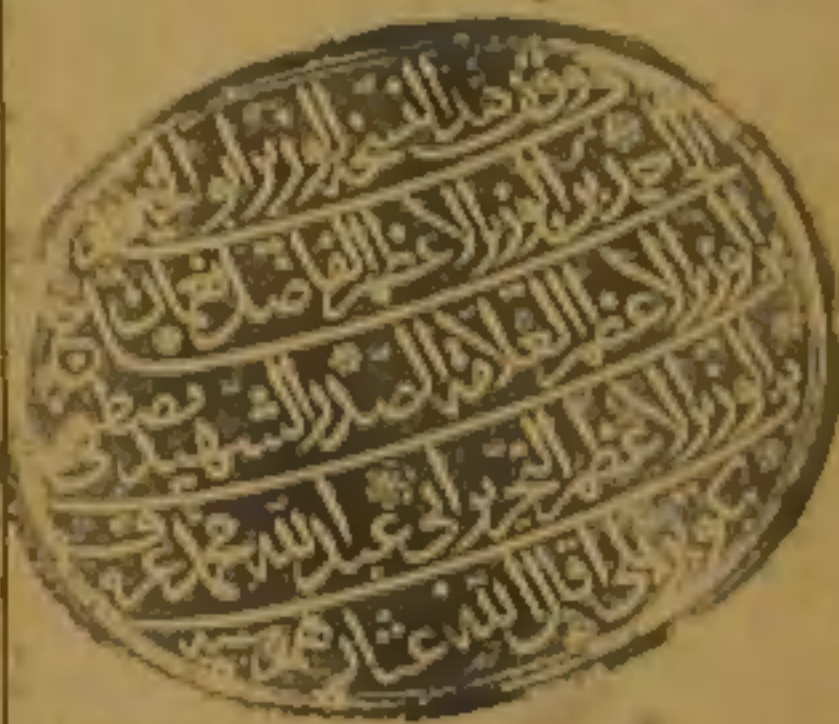 وقف هذه النسخة الوزير أبو العباس
أحمد بن الوزير الأعظم الفاضل نعمان بن
الوزير الأعظم العلامة الصدر الشهيد مصطفى
بن الوزير الأعظم النحرير أبي عبد الله محمد عرف
بكوپريلي أقال الله عثارهم